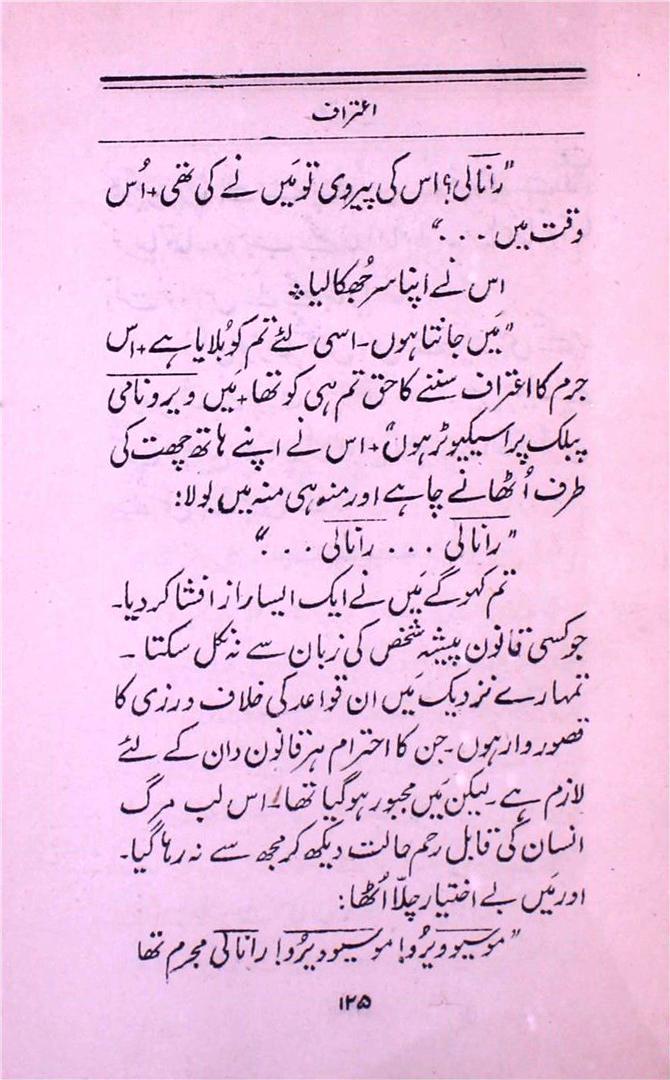 اعتراف
"رانالی؟ اس کی پیروی تو مَیں نے کی تھی+ اُس
وقت میں . . ."
اس نے اپنا سر جُھکا لیا٭
"مَیں جانتا ہوں۔ اسی لئے تم کو بُلایا ہے+ اس
جرم کا اعتراف سننے کا حق تم ہی کو تھا+ مَیں ویرو نامی
پبلک پراسیکیوٹر ہوں"+ اس نے اپنے ہاتھ چھت کی
طرف اُٹھانے چاہے اور منہ ہی منہ میں بولا:
"رانالی . . . رانالی . . ."
تم کہو گے مَیں نے ایک ایسا راز افشا کر دیا۔
جو کسی قانون پیشہ شخص کی زبان سے نہ نکل سکتا ۔
تمہارے نزدیک مَیں ان قواعد کی خلاف ورزی کا
قصوروار ہوں۔ جن کا احترام ہر قانون دان کے لئے
لازم ہے ۔ لیکن مَیں مجبور ہو گیا تھا۔ اس لب مرگ
انسان کی قابل رحم حالت دیکھ کر مجھ سے نہ رہا گیا۔
اور مَیں بے اختیار چلّا اُٹھا:
"موسیو ویرُو! موسیو ویرُو! رانالی مجرم تھا
۱۲۵